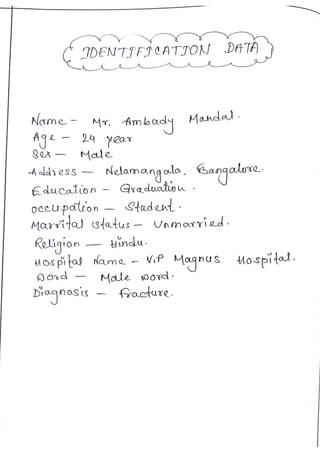 IDENTIFICATION DATA
Name - Mr. Ambady Mandal.
Age - 24 year
Sex - Male
Address - Nelamangala, Bangalore.
Education - Graduation.
occupation - Student.
Marrital status - Unmarried.
Religion - Hindu.
Hospital Name - V.P Magnus Hospital.
Word - Male word.
Diagnosis - fracture.